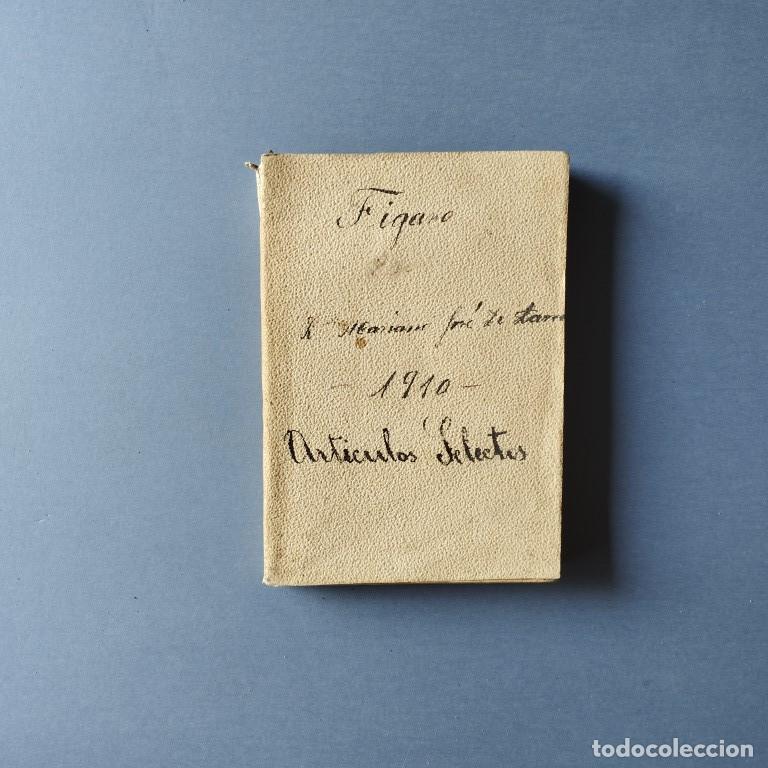 Figaro
Mariano José de Larra
- 1910 -
Articulos Selectos
todocoleccion